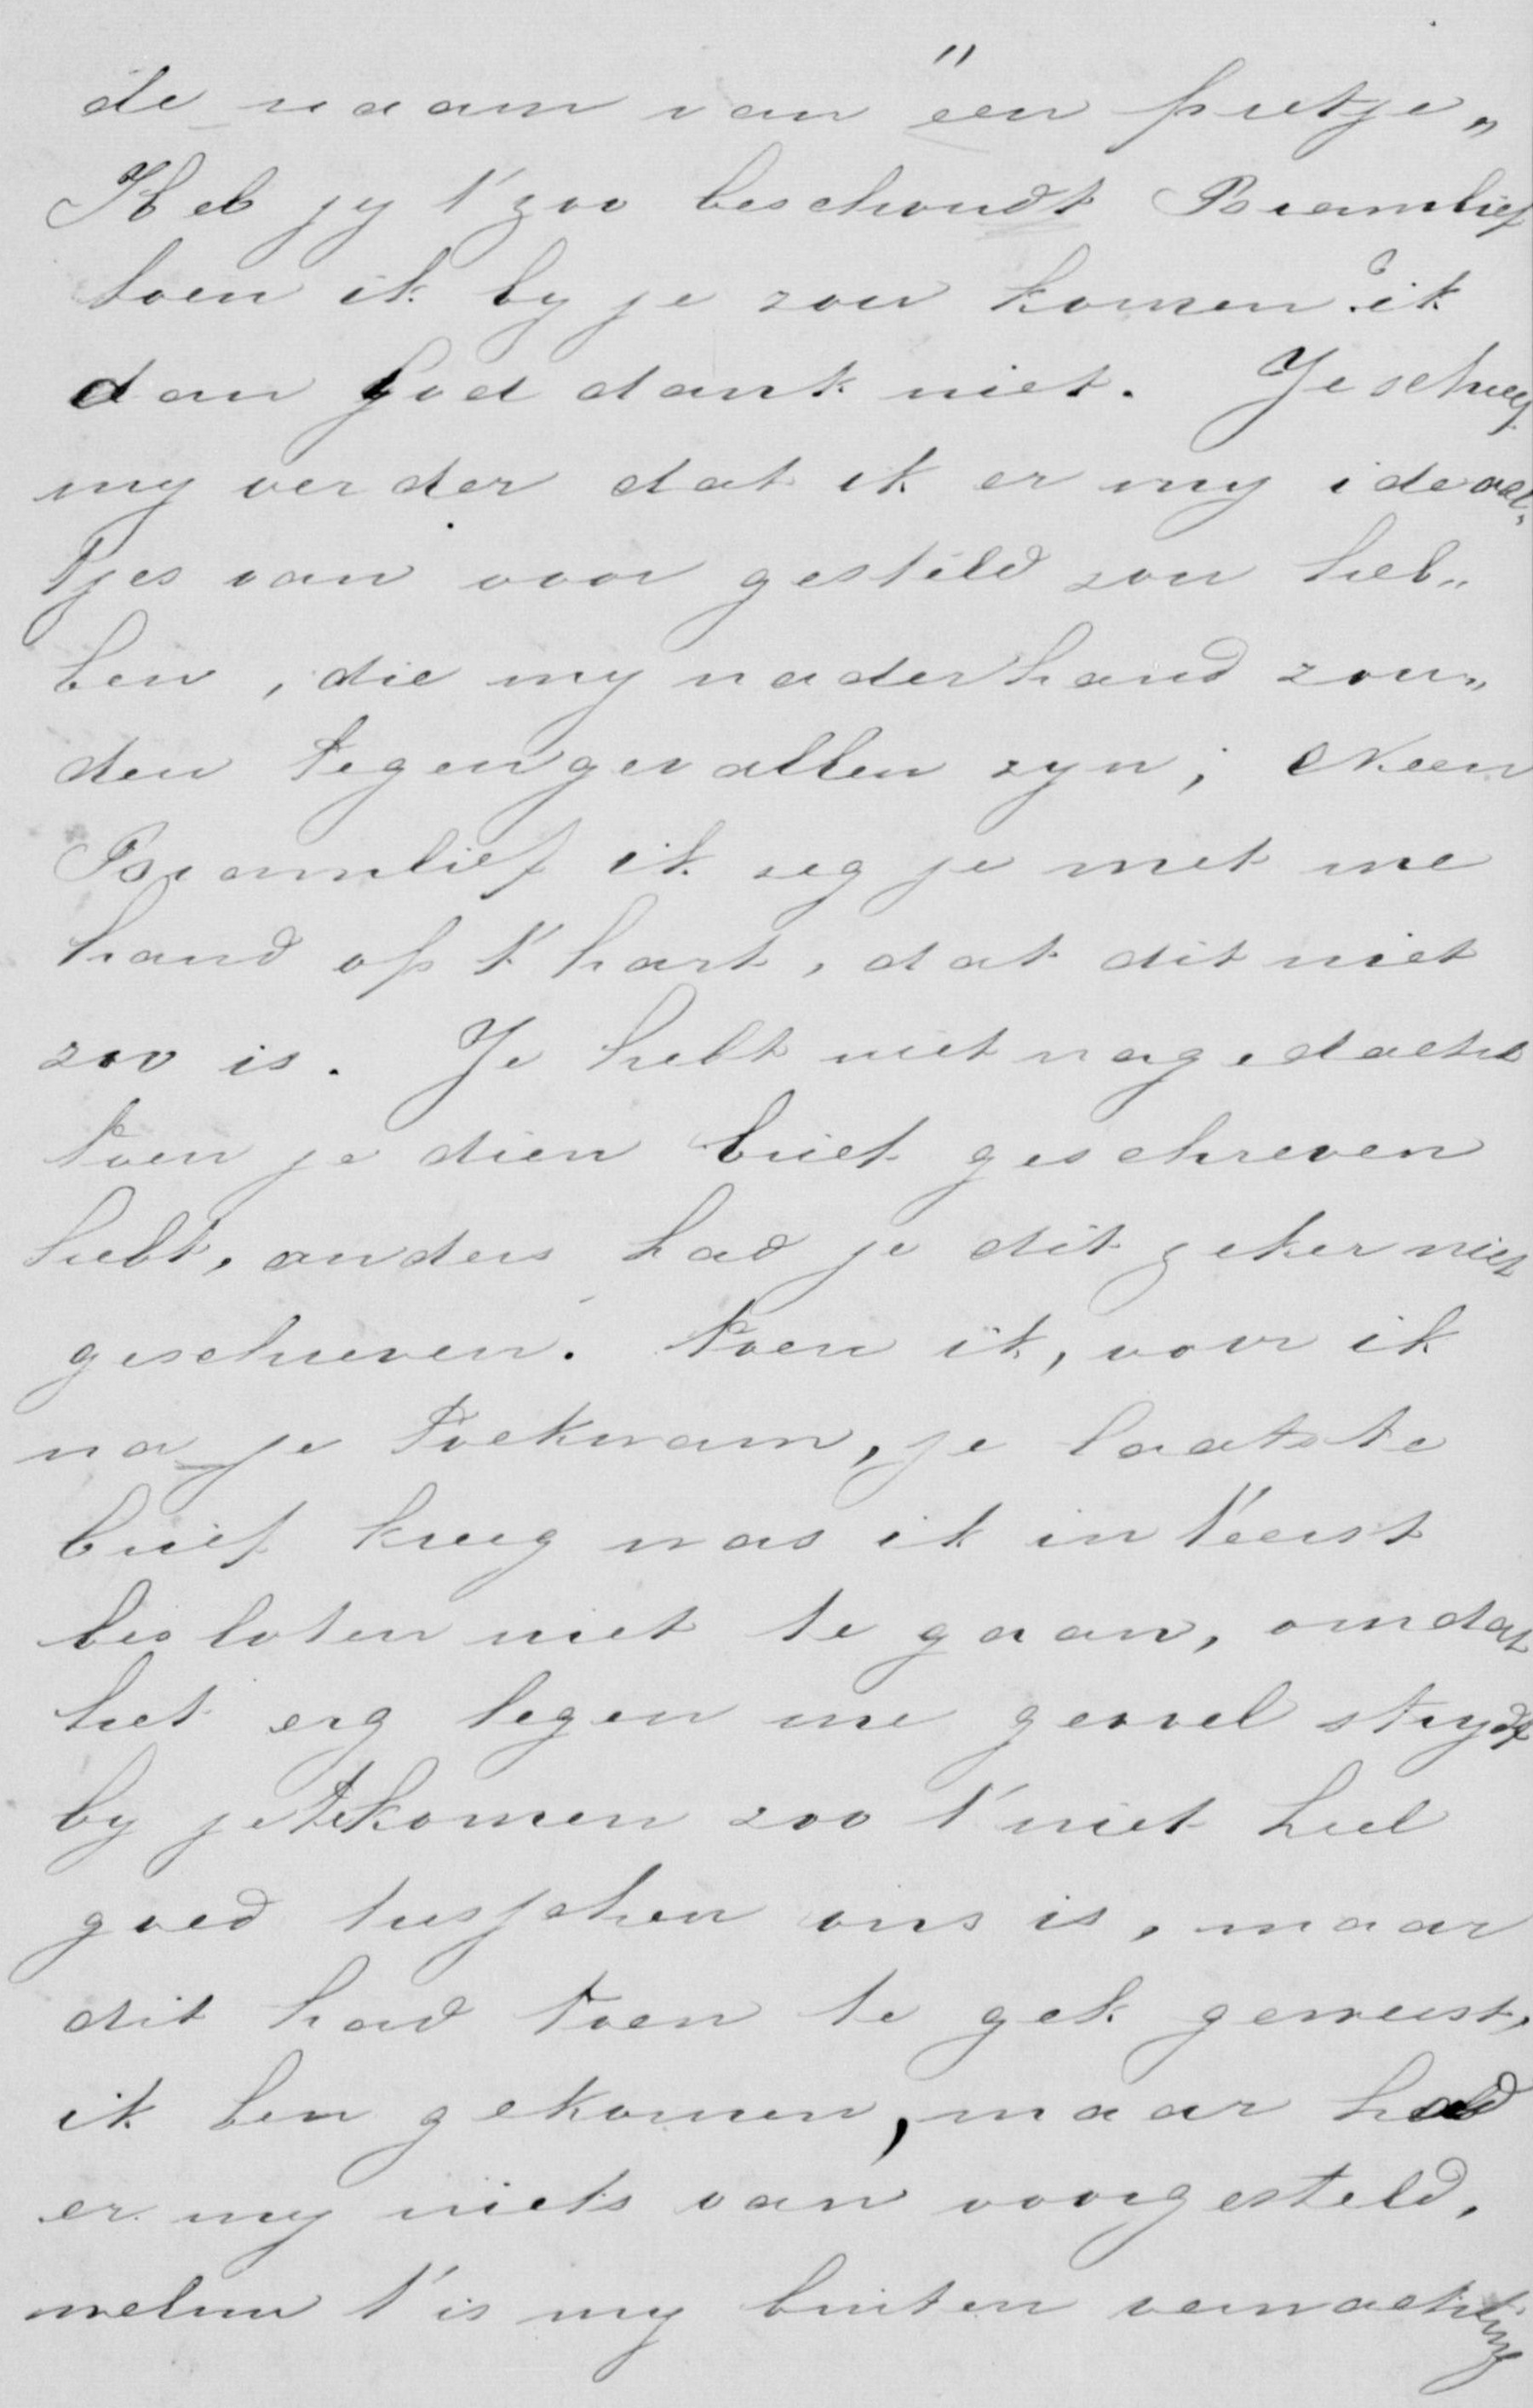 de naam van "een pretje"
Heb jy t' zoo beschouwdt Bramlief
toen ik by je zou komen? ik
dan God dank niet. Je schreef
my verder dat ik er my ideaal„
tjes van voor gesteld zou heb„
ben, die my naderhand zou„
den tegengevallen zyn; Neen
Bramlief ik zeg je met me
hand op t' hart, dat dit niet
zoo is. Je hebt niet nagedacht
toen je dien brief geschreven
hebt, anders had je dit zeker niet
geschreven. Toen ik, voor ik
na je toekwam, je laatste
brief kreeg was ik in t'eerst
besloten niet te gaan, omdat
het erg tegen me gevoel strydt
by je te komen zoo t' niet heel
goed tusschen ons is, maar
dit had toen te gek geweest,
ik ben gekomen, maar had
er my niets van voorgesteld,
welnu t' is my buiten verwachting